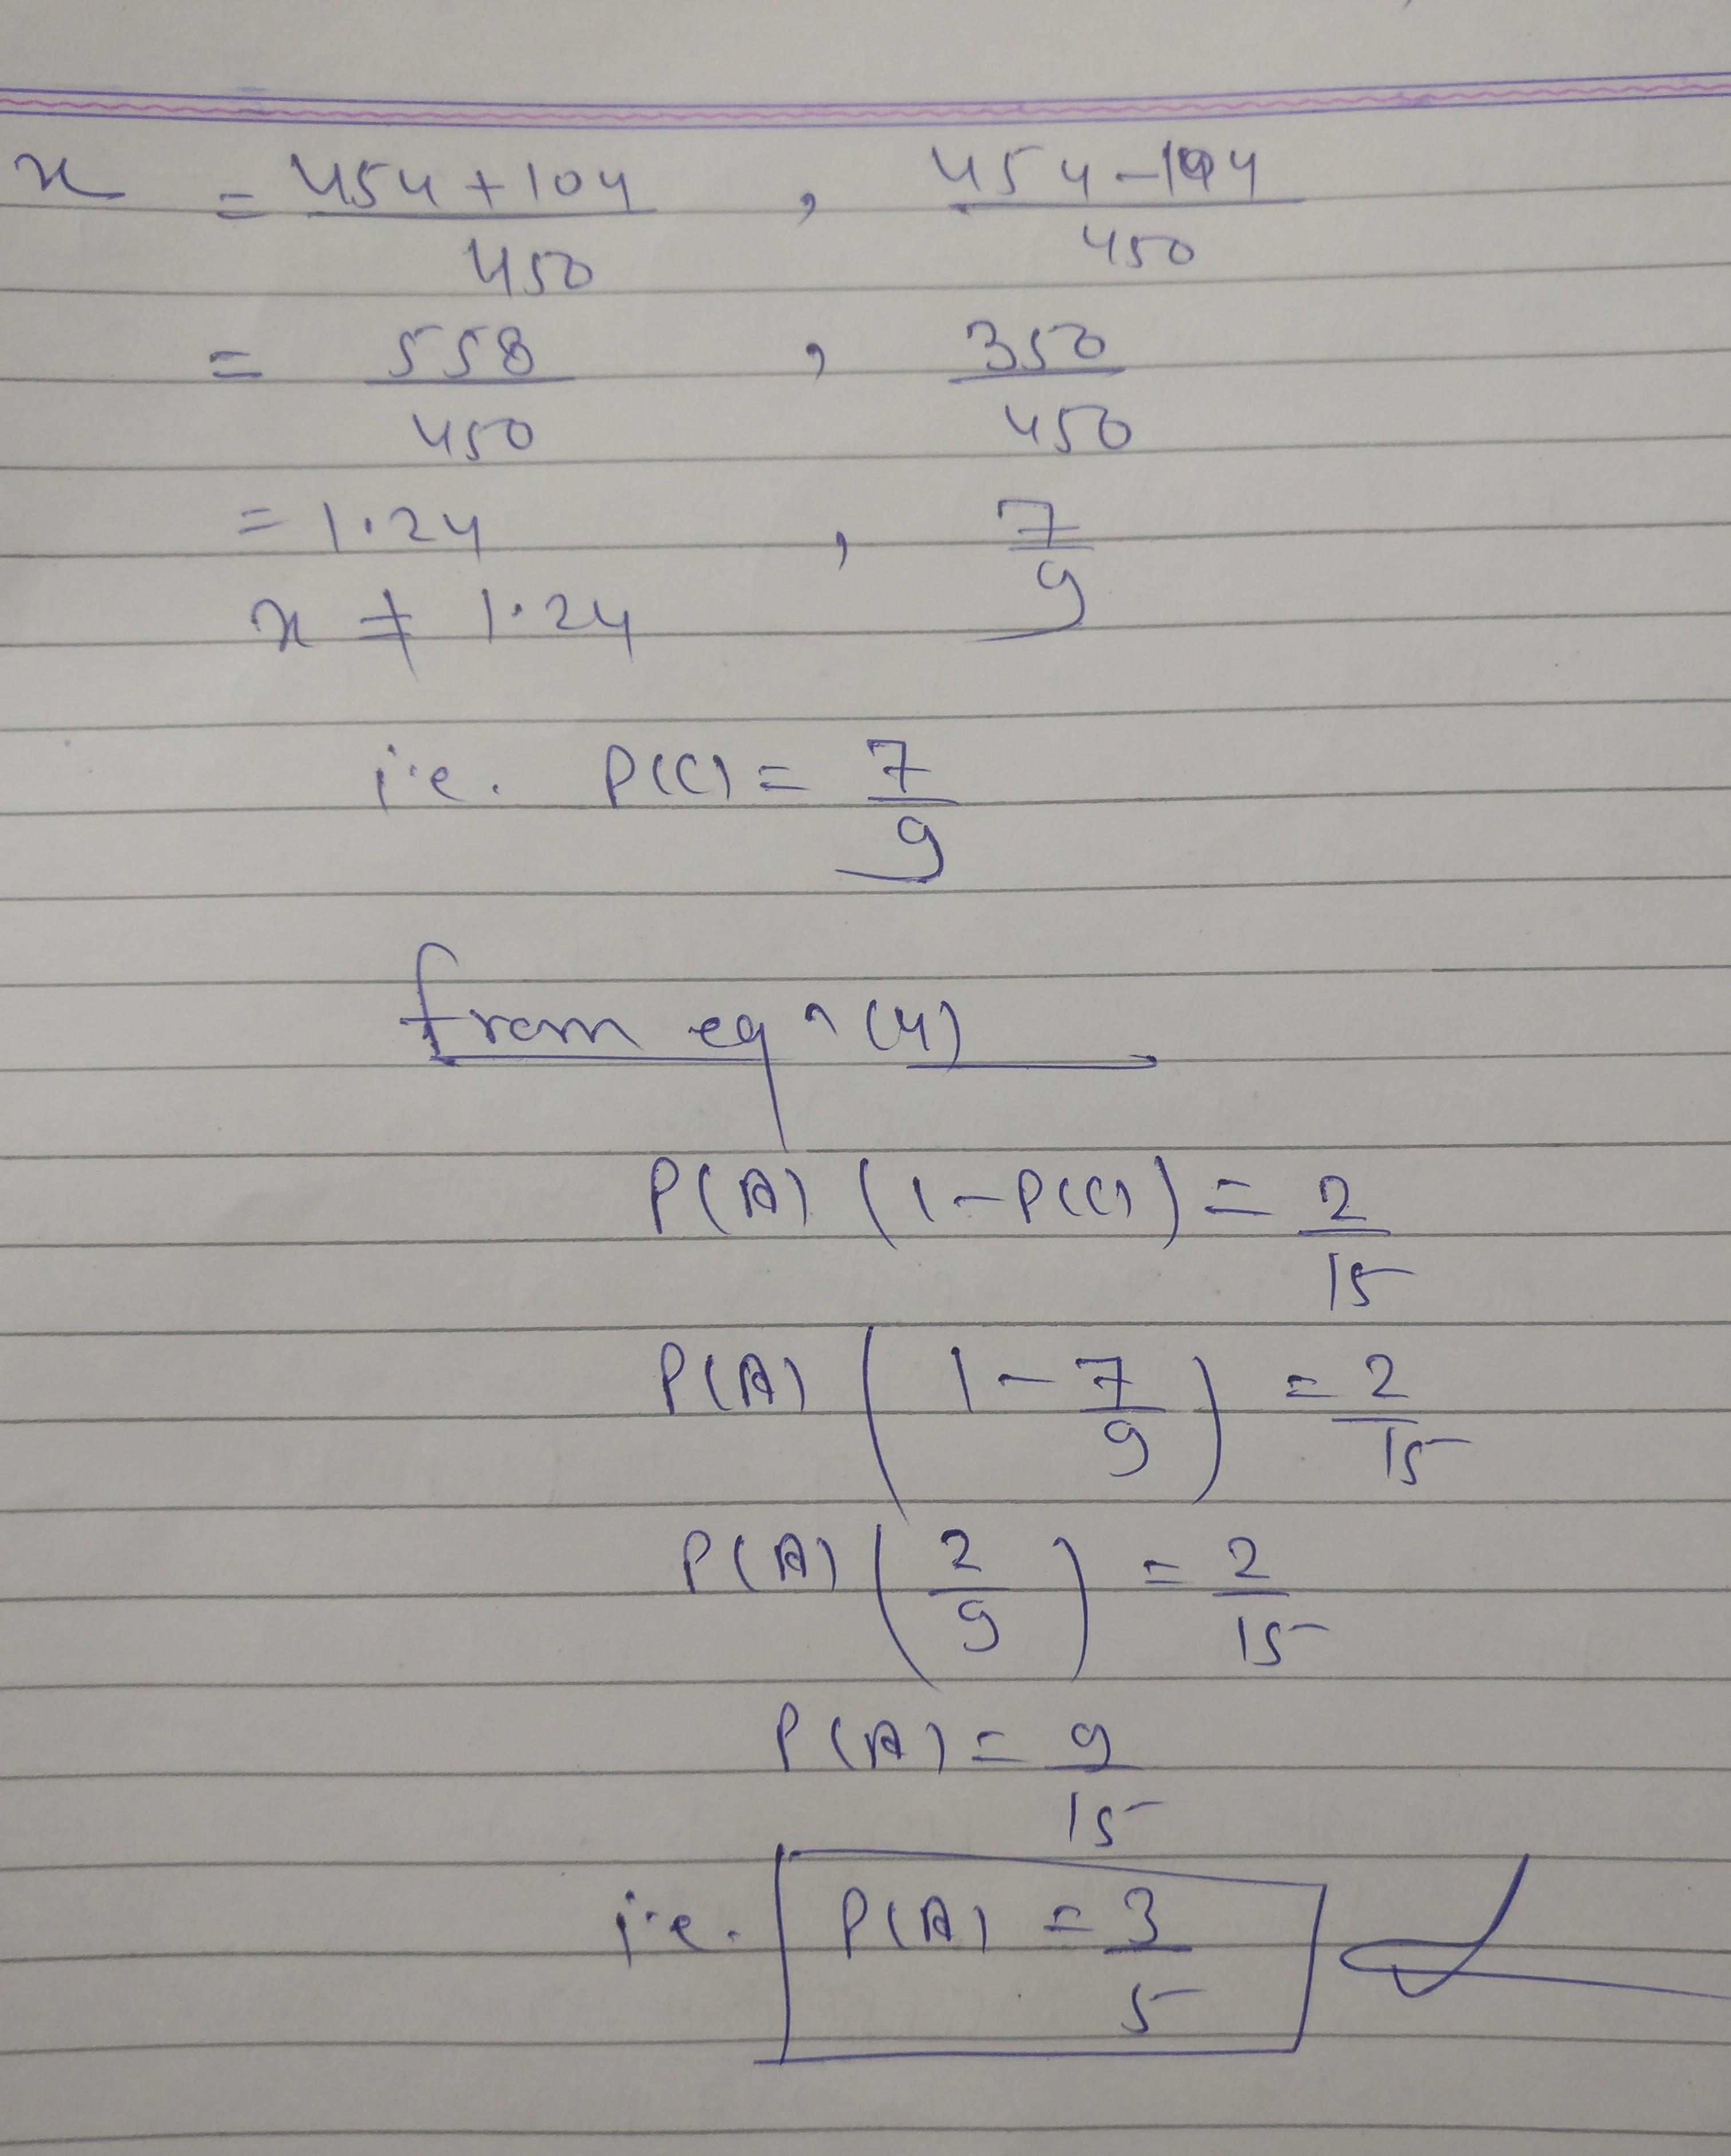 x = (454+104)/450 , (454-104)/450
= 558/450 , 350/450
= 1.24 , 7/9
x ≠ 1.24
i.e. P(C) = 7/9
from eqn (4)
P(A) (1-P(C)) = 2/15
P(A) (1 - 7/9) = 2/15
P(A) (2/9) = 2/15
P(A) = 9/15
i.e. P(A) = 3/5